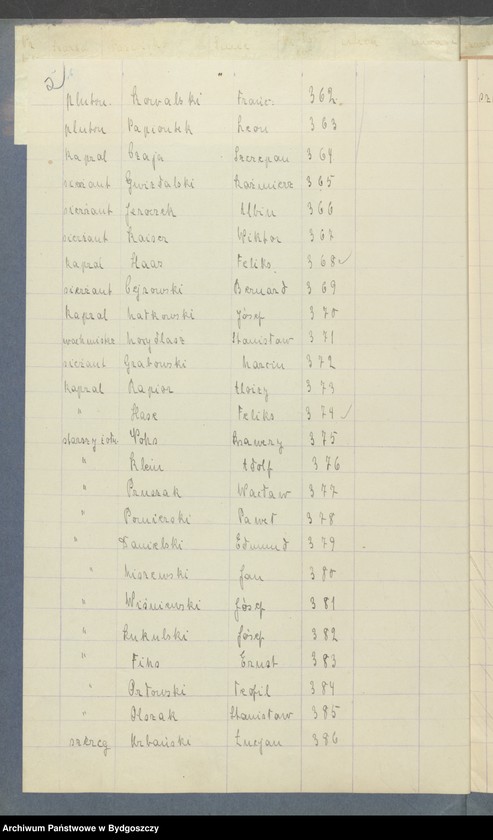 pluton. Kowalski Franc. 362.
pluton Papiontek Leon 363
Kapral Czaja Szczepan 364
sierżant Gwizdalski Kaźmierz 365
sierżant Jeraczek Albin 366
sierżant Kaiser Wiktor 367
Kapral Haas Feliks 368
sierżant Cejrowski Bernard 369
Kapral Małkowski Józef 370
Stanisław 371
sierżant Grabowski Marcin 372
Kapral Rapior Alojzy 373
" Hase Feliks 374
Ksawery 375
" Klein Adolf 376
" Pruszak Wacław 377
" Pomierski Paweł 378
" Danielski Edmund 379
" Miszewski Jan 380
" Wiśniewski Józef 381
" Kukulski Józef 382
" Fiks Ernst 383
" Teofil 384
" Olszak Stanisław 385
szereg Urbański Lucjan 386
Archiwum Państwowe w Bydgoszczy